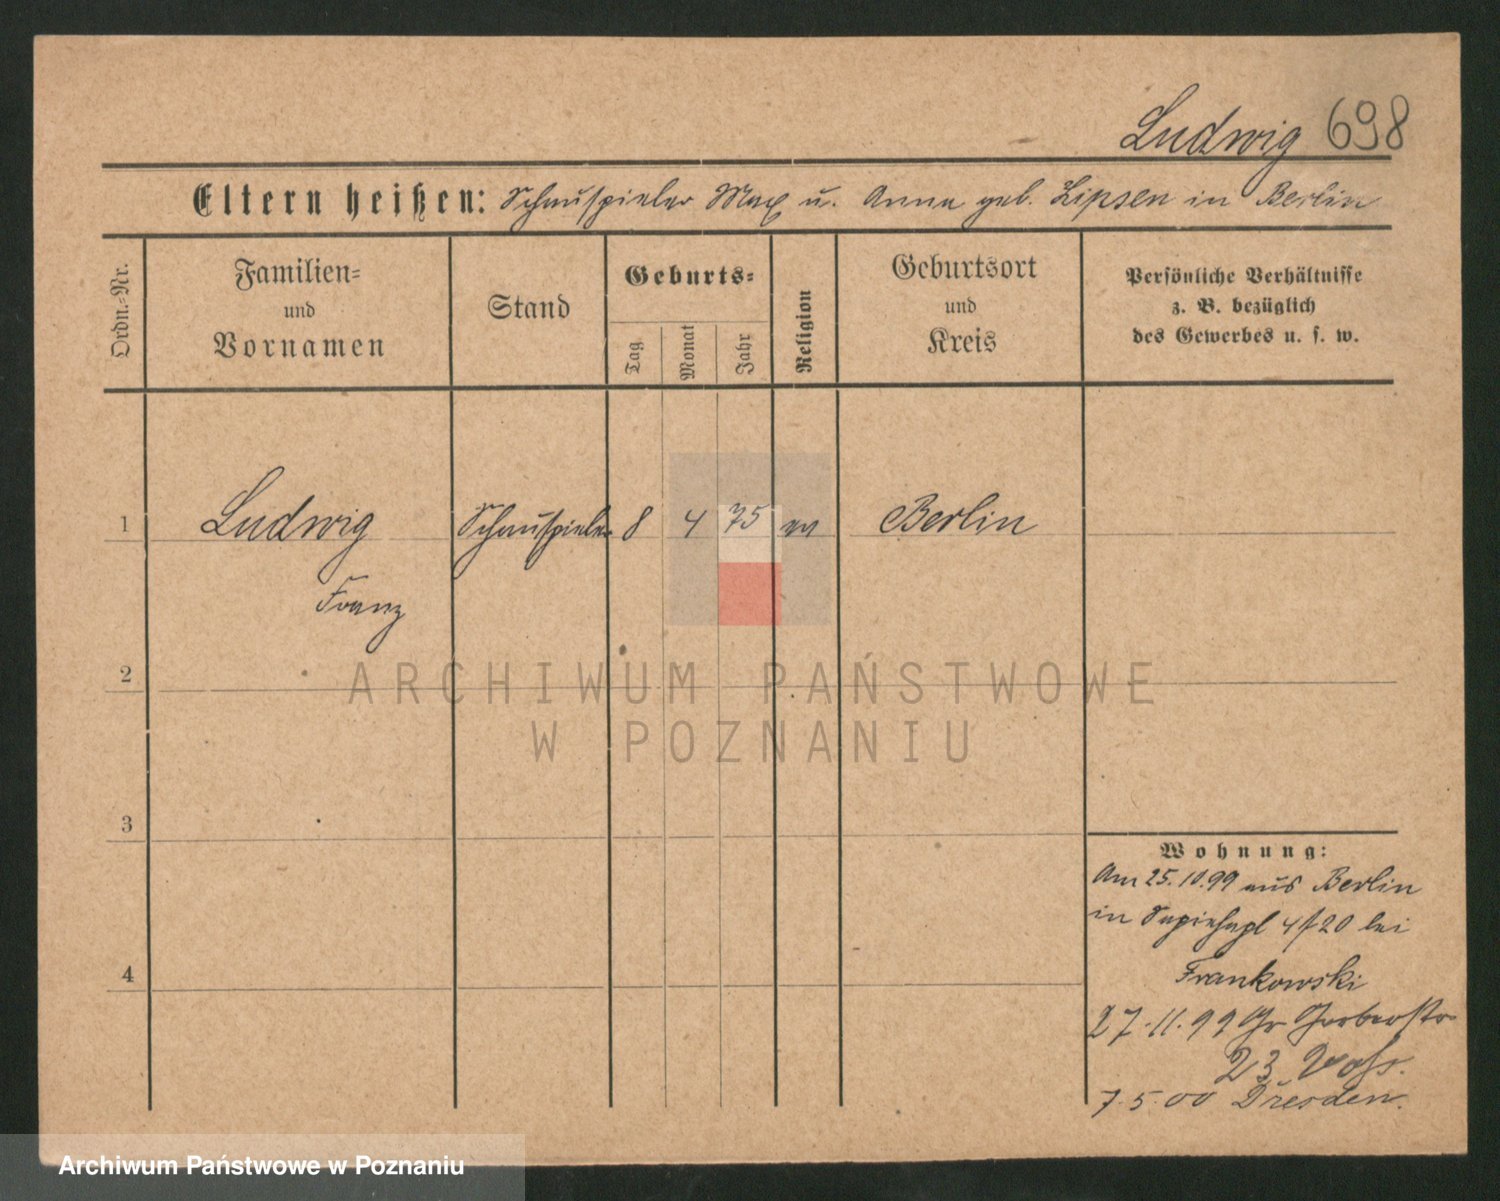 Ludwig 698
Eltern heißen: Schauspieler Max u. Anna geb. Lipsen in Berlin
Ordn.-Nr.
Familien-
und
Vornamen
Stand
Geburts-
Tag
Monat
Jahr
Religion
Geburtsort
und
Kreis
Persönliche Verhältnisse
z. B. bezüglich
des Gewerbes u. s. w.
1 Ludwig Schauspieler 8 4 75 Berlin
Franz
2
3
4
Wohnung:
Am 25.10.99 aus Berlin
in Sapiehapl 4/20 bei
Frankowski
27.11.99 Gr Gerberstr
23 Voss.
7.5.00 Dresden.
ARCHIWUM PAŃSTWOWE
W POZNANIU
Archiwum Państwowe w Poznaniu